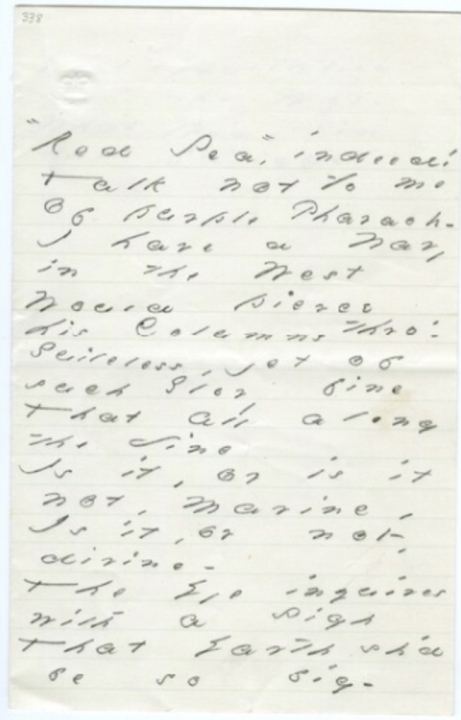 338
"Red Sea," indeed!
Talk not to me
Of purple Pharaoh -
I have a Navy
in the West
Would pierce
his Columns thro' -
Guileless, yet of
such Glory fine
That all along
the Line
Is it, or is it
not, Marine,
Is it, or not,
divine -
The Eye inquires
with a sigh
That Earth sh'd
be so big -